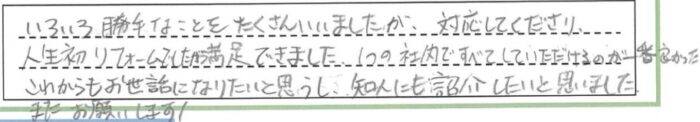 いろいろ勝手なことをたくさんいいましたが、対応してくださり、
人生初リフォームでしたが満足できました。1つの社内ですべてしていただけるのが一番良かった
これからもお世話になりたいと思うし、知人にも紹介したいと思いました。
またお願いします!